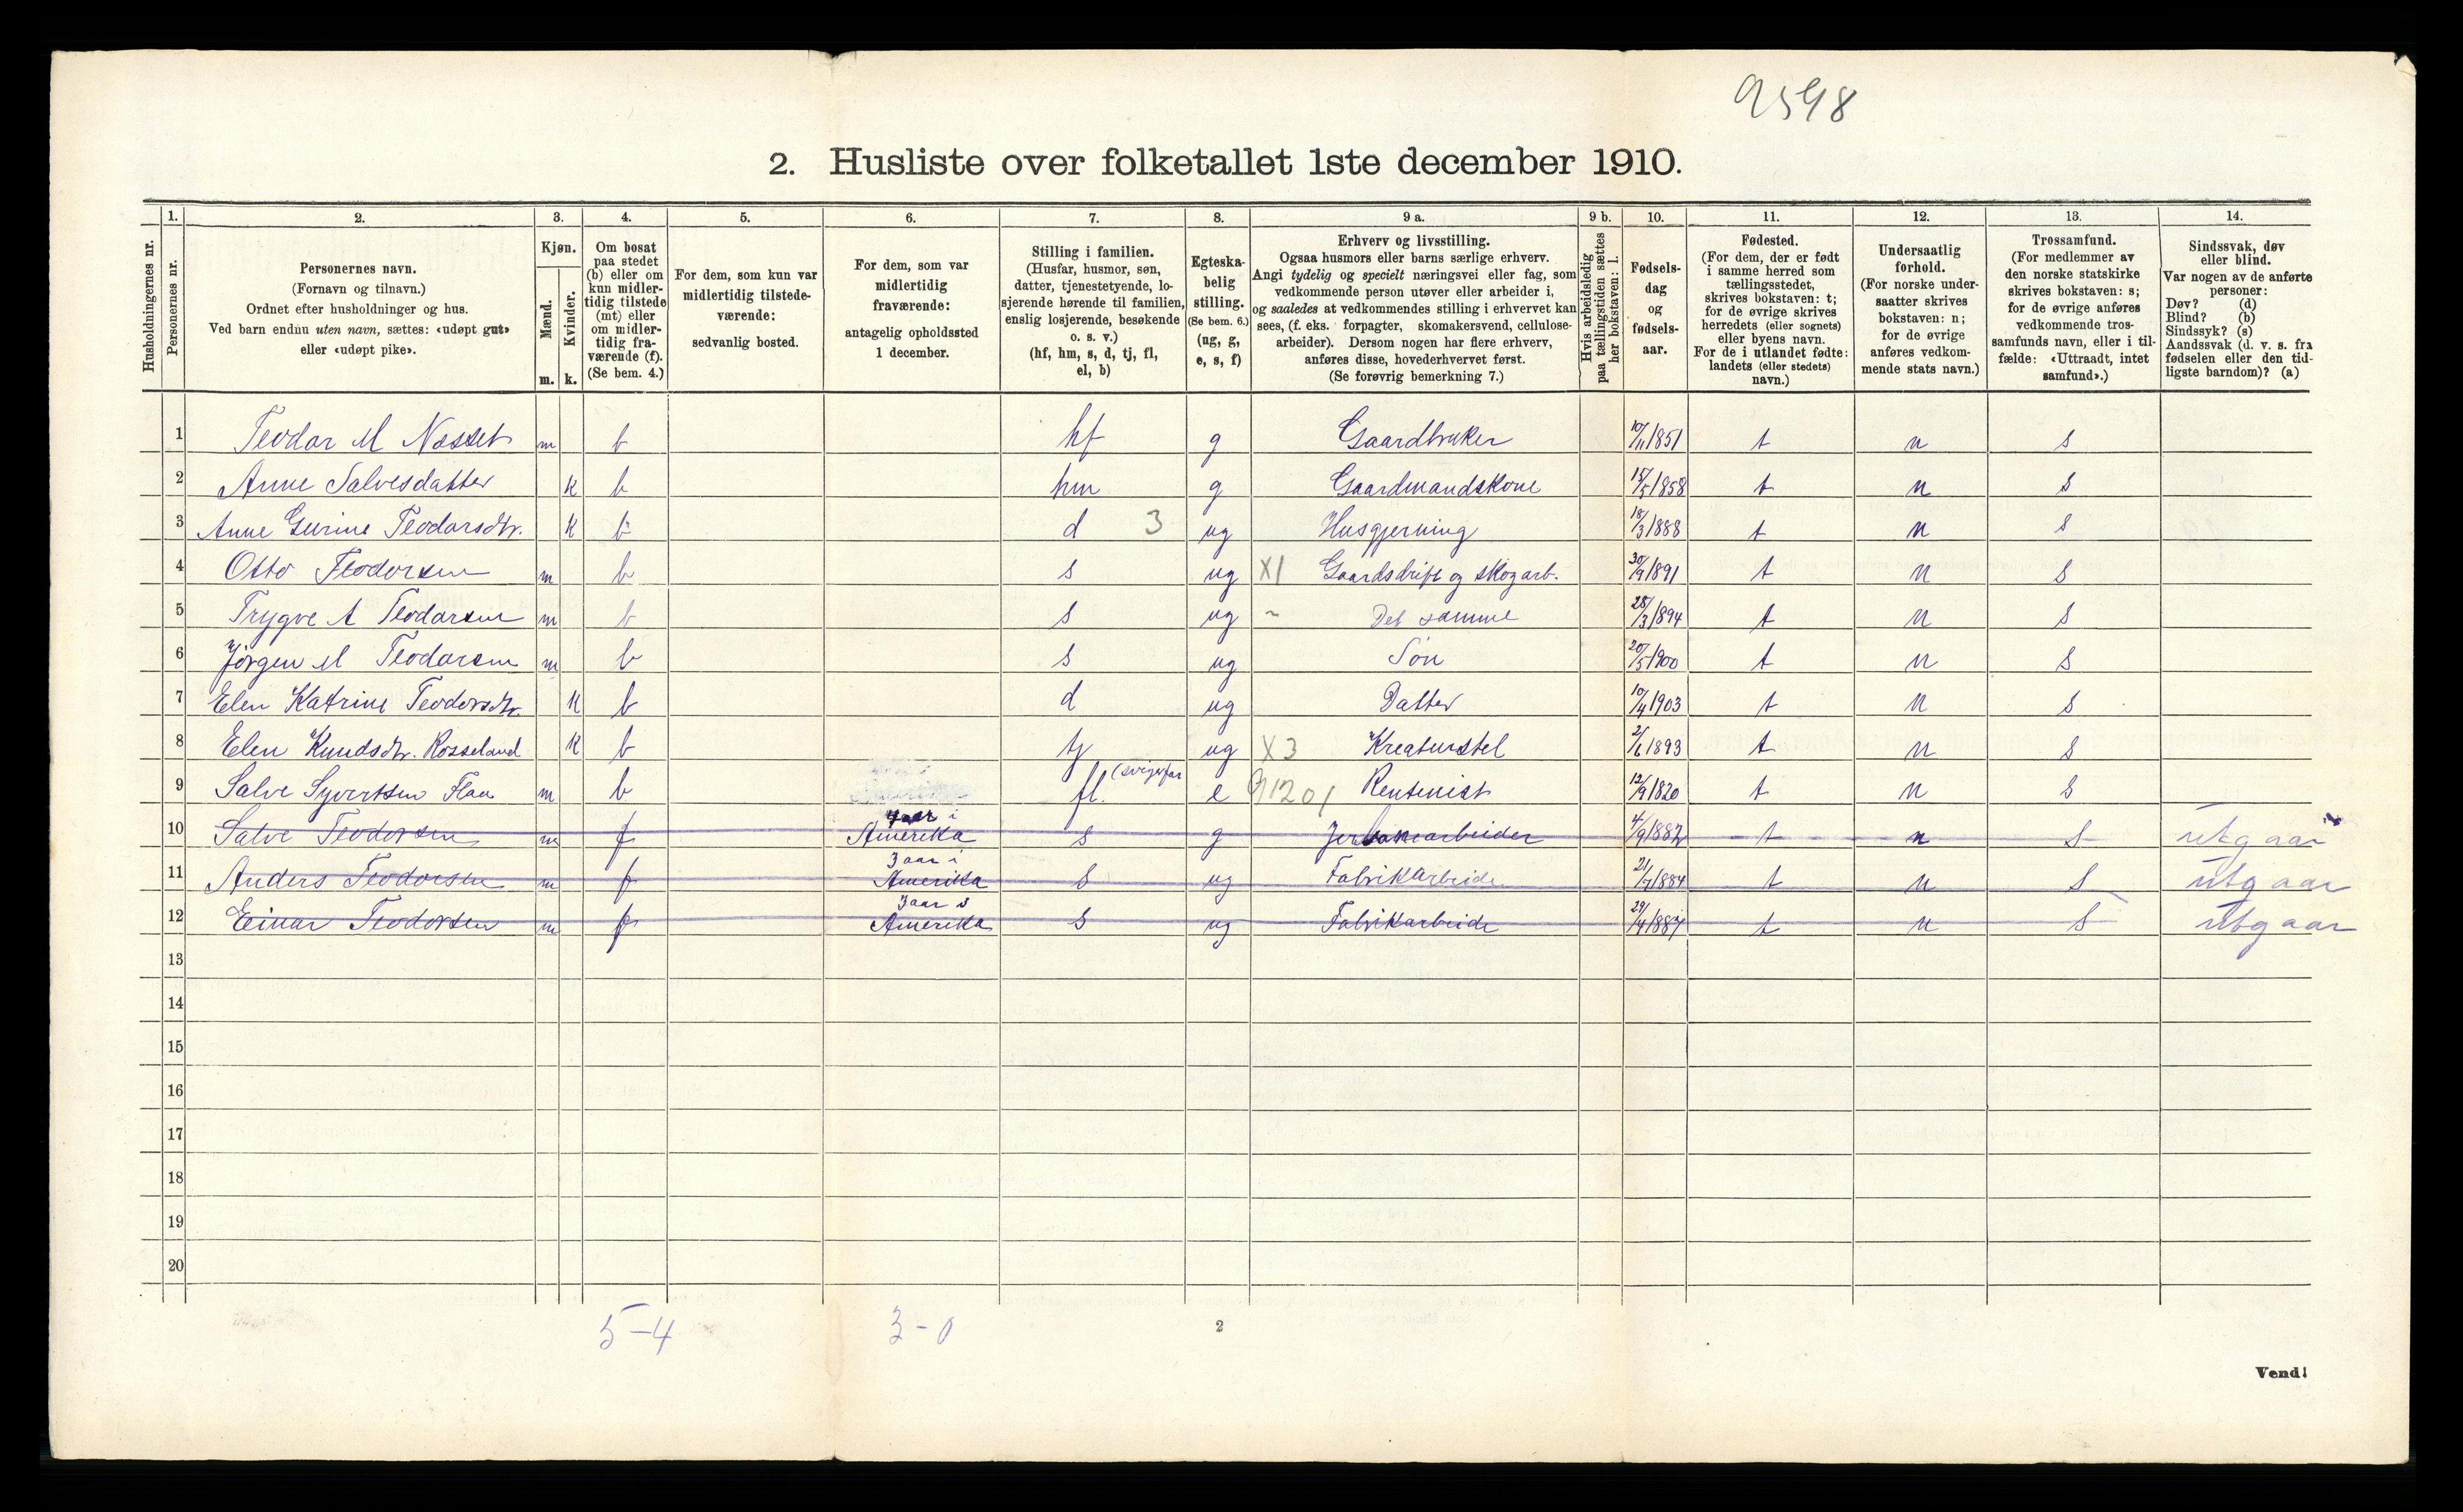 9598
2. Husliste over folketallet 1ste december 1910.
Husholdningernes nr.
1.
Personernes nr.
2.
Personernes navn.
(Fornavn og tilnavn.)
Ordnet efter husholdninger og hus.
Ved barn endnu uten navn, sættes: «udøpt gut»
eller «udøpt pike».
3.
Kjøn.
Mænd.
m.
Kvinder.
k.
4.
Om bosat
paa stedet
(b) eller om
kun midler-
tidig tilstede
(mt) eller
om midler-
tidig fra-
værende (f).
(Se bem. 4.)
5.
For dem, som kun var
midlertidig tilstede-
værende:
sedvanlig bosted.
6.
For dem, som var
midlertidig
fraværende:
antagelig opholdssted
1 december.
7.
Stilling i familien.
(Husfar, husmor, søn,
datter, tjenestetyende, lo-
sjerende hørende til familien,
enslig losjerende, besøkende
o. s. v.)
(hf, hm, s, d, tj, fl,
el, b)
8.
Egteska-
belig
stilling.
(Se bem. 6.)
(ug, g,
e, s, f)
9 a.
Erhverv og livsstilling.
Ogsaa husmors eller barns særlige erhverv.
Angi tydelig og specielt næringsvei eller fag, som
vedkommende person utøver eller arbeider i,
og saaledes at vedkommendes stilling i erhvervet kan
sees, (f. eks. forpagter, skomakersvend, cellulose-
arbeider). Dersom nogen har flere erhverv,
anføres disse, hovederhvervet først.
(Se forøvrig bemerkning 7.)
9 b.
Hvis arbeidsledig
paa tællingstiden sættes
her bokstaven: l.
10.
Fødsels-
dag
og
fødsels-
aar.
11.
Fødested.
(For dem, der er født
i samme herred som
tællingsstedet,
skrives bokstaven: t;
for de øvrige skrives
herredets (eller sognets)
eller byens navn.
For de i utlandet fødte:
landets (eller stedets)
navn.)
12.
Undersaatlig
forhold.
(For norske under-
saatter skrives
bokstaven: n;
for de øvrige
anføres vedkom-
mende stats navn.)
13.
Trossamfund.
(For medlemmer av
den norske statskirke
skrives bokstaven: s;
for de øvrige anføres
vedkommende tros-
samfunds navn, eller i til-
fælde: «Uttraadt, intet
samfund».)
14.
Sindssvak, døv
eller blind.
Var nogen av de anførte
personer:
Døv? (d)
Blind? (b)
Sindssyk? (s)
Aandssvak (d. v. s. fra
fødselen eller den tid-
ligste barndom)? (a)
1 Teodar M Nesset m b hf g Gaardbruker 10/11 1851 t n s
2 Anne Salvesdatter k b hm g Gaardmandskone 15/5 1858 t n s
3 Anne Gurine Teodarsdtr. k b d 3 ug Husgjerning 18/3 1888 t n s
4 Otto Teodorsen m b s ug X1 Gaardsdrift og skogarb. 30/9 1891 t n s
5 Trygve A Teodarsen m b s ug ~ Det samme 28/3 1894 t n s
6 Jörgen M Teodarsen m b s ug Sön 20/5 1900 t n s
7 Elen Katrine Teodorsdtr. k b d ug Datter 10/4 1903 t n s
8 Elen Knudsdtr. Rosseland k b tj ug X3 Kreaturstel 2/6 1893 t n s
9 Salve Syvertsen Flaa m b fl. (svigerfar e 91201 Rentenist 12/9 1820 t n s
10 Salve Teodorsen m f aar i Amerika s g Jerbanearbeider 4/9 1882 t n s utgaar
11 Anders Teodorsen m f 3 aar i Amerika s ug Fabrikarbeide 21/7 1884 t n s utgaar
12 Einar Teodorsen m f 3 aar i Amerika s ug Fabrikarbeide 29/4 1887 t n s utgaar
13
14
15
16
17
18
19
20
5-4
3-0
2
Vend!